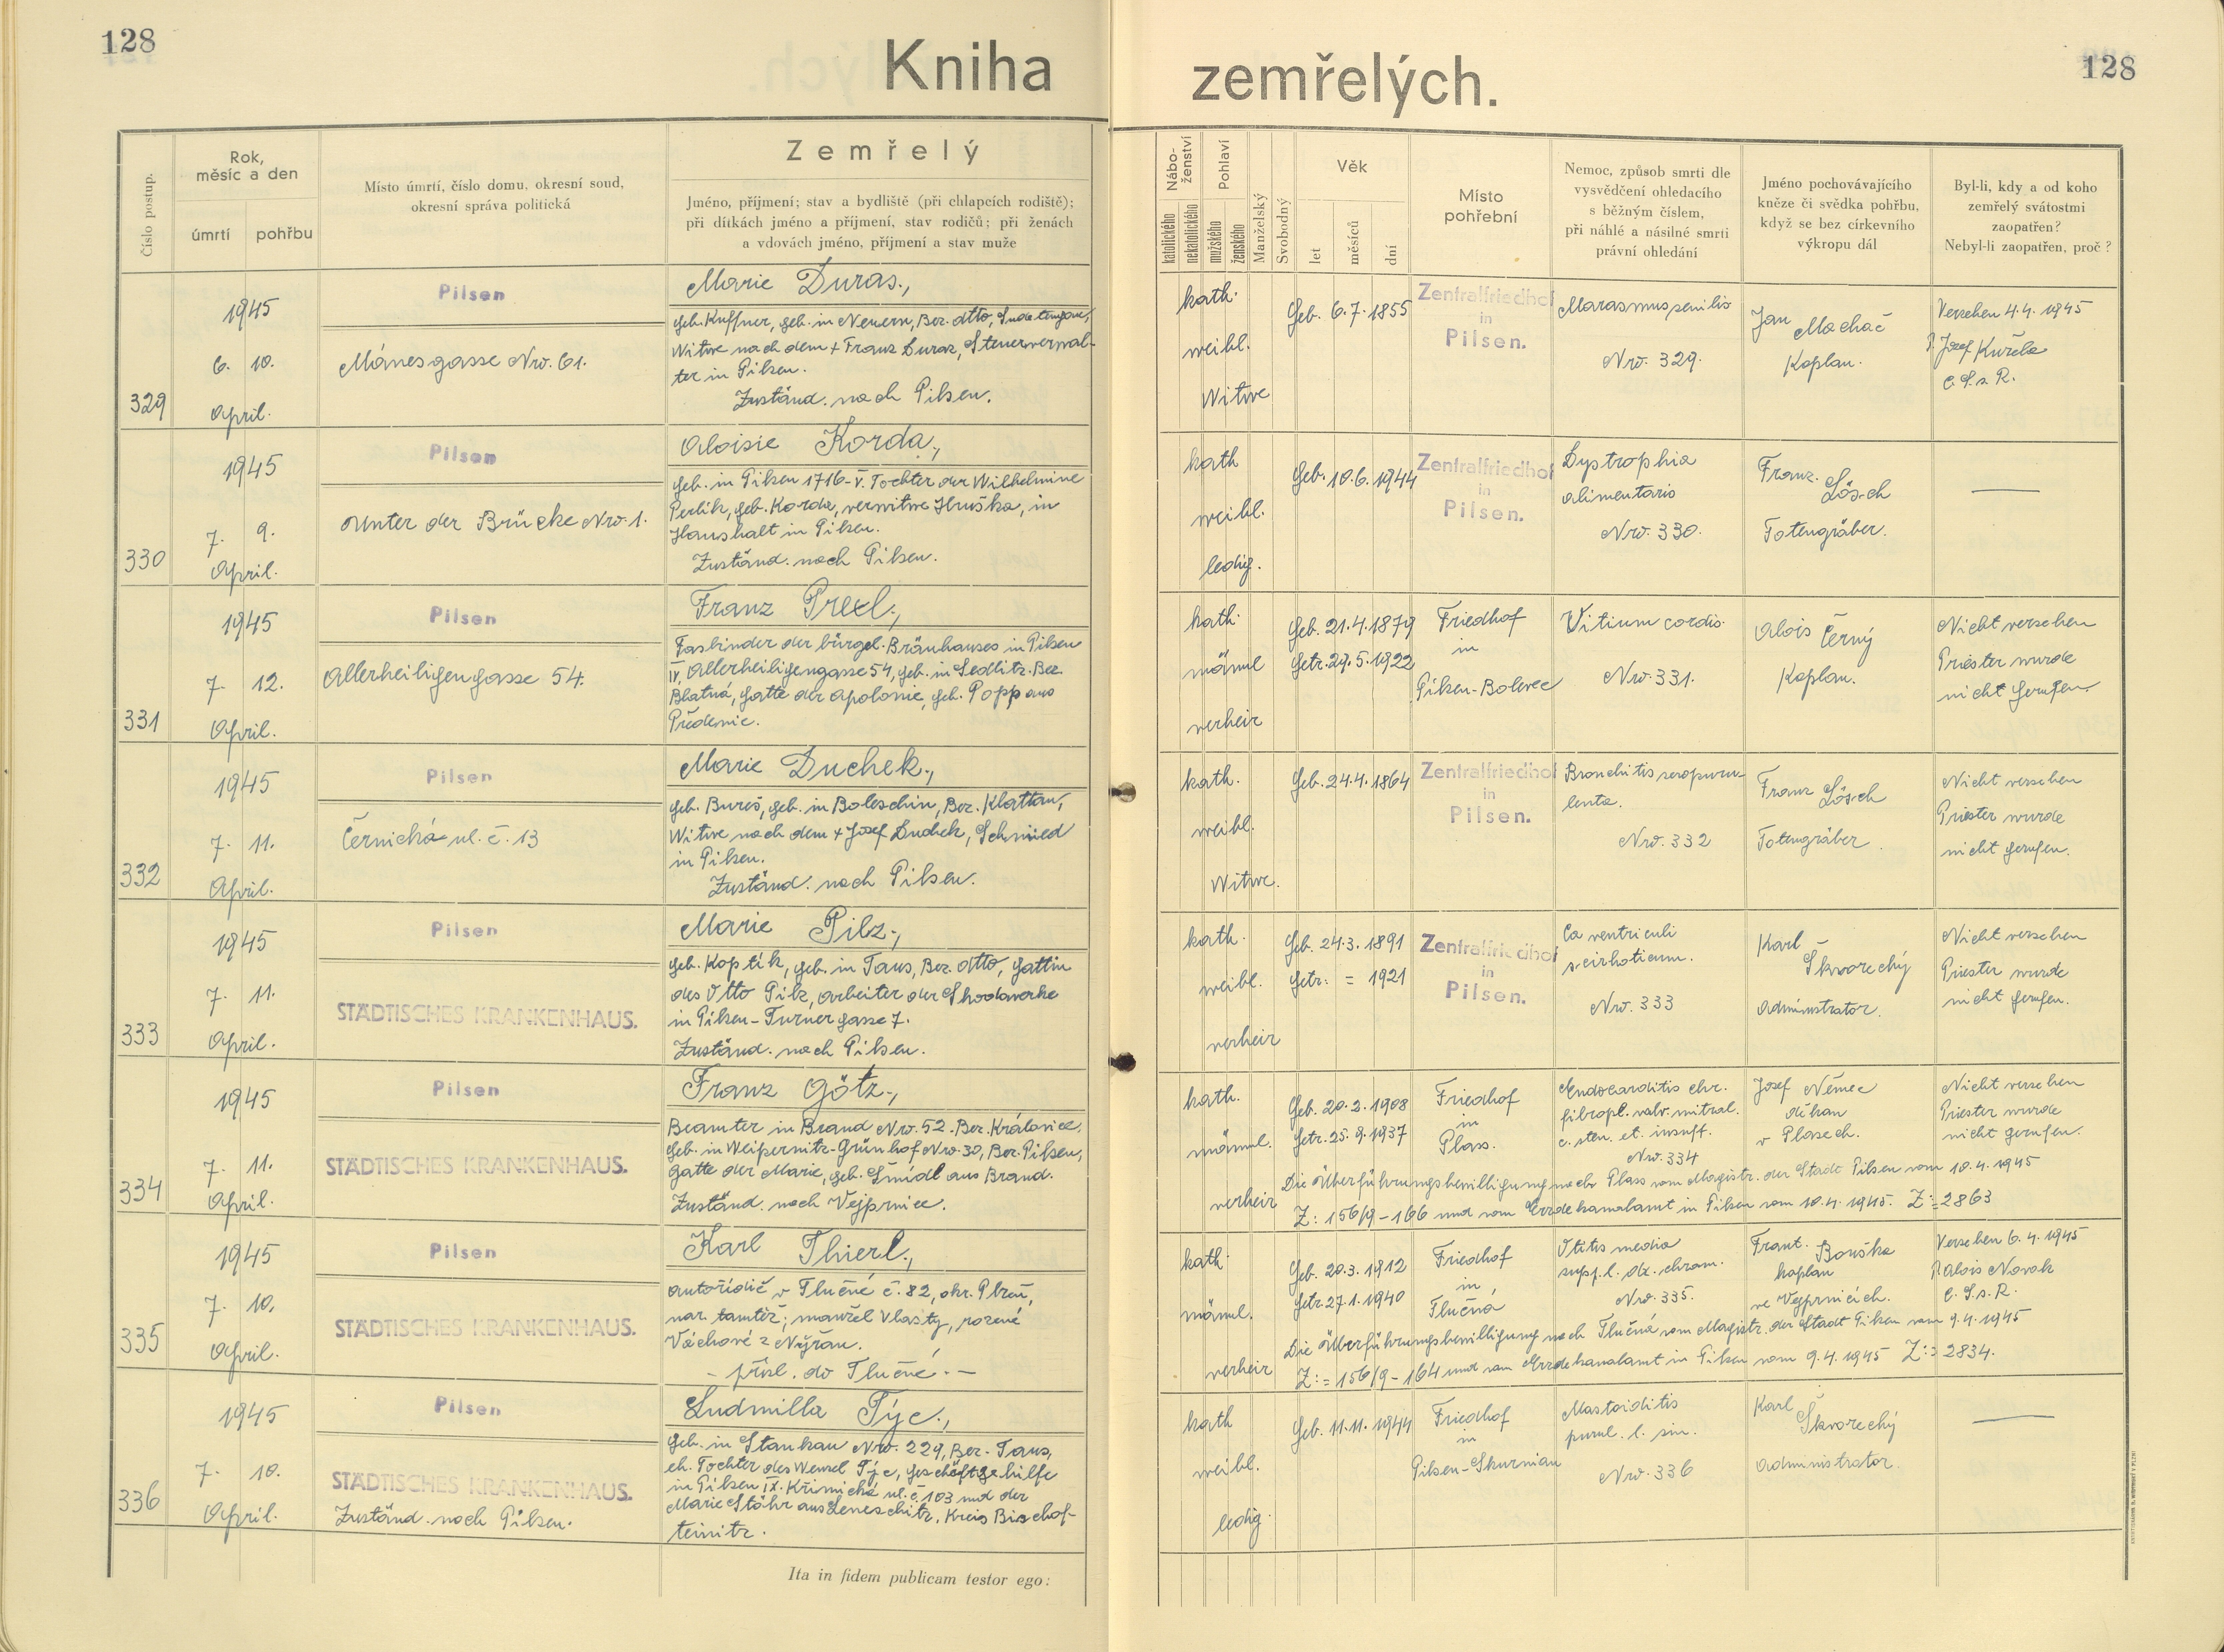 128
Kniha zemřelých.
128
Číslo postup.
Rok, měsíc a den
úmrtí
pohřbu
Místo úmrtí, číslo domu, okresní soud,
okresní správa politická
Zemřelý
Jméno, příjmení; stav a bydliště (při chlapcích rodiště);
při dítkách jméno a příjmení, stav rodičů; při ženách
a vdovách jméno, příjmení a stav muže
Nábo-
ženství
katolického
nekatolického
Pohlaví
mužského
ženského
Manželský
Svobodný
Věk
let
měsíců
dní
Místo
pohřební
Nemoc, způsob smrti dle
vysvědčení ohledacího
s běžným číslem,
při náhlé a násilné smrti
právní ohledání
Jméno pochovávajícího
kněze či svědka pohřbu,
když se bez církevního
výkropu dál
Byl-li, kdy a od koho
zemřelý svátostmi
zaopatřen?
Nebyl-li zaopatřen, proč?
329
1945
6. 10.
April.
Pilsen
Mánesgasse Nro. 61.
Marie Duras.,
geb. Kuffner, geb. in Neuern, Bez. dtto,
Witwe nach dem + Franz Duras, Steuerverwal-
ter in Pilsen.
Zuständ. nach Pilsen.
kath.
weibl.
Witwe
Geb. 6.7.1855
Zentralfriedhof
in
Pilsen.
Marasmus senilis
Nro. 329.
Jan Machač
Kaplan.
Versehen 4.4.1945
P. Josef Kuřela
C.S.s.R.
330
1945
7. 9.
April.
Pilsen
Unter der Brücke Nro. 1.
Aloisie Korda.,
geb. in Pilsen 1716-V. Tochter der Wilhelmine
Perlík, geb. Korda, verwitwe Huška, in
Haushalt in Pilsen.
Zuständ. nach Pilsen.
kath
weibl.
ledig.
Geb. 10.6.1944
Zentralfriedhof
in
Pilsen.
Dystrophia
alimentaris
Nro. 330.
Franz Lösch
Totengräber.
331
1945
7. 12.
April.
Pilsen
Allerheiligengasse 54.
Franz
Fasbinder der bürgel. Bräuhauses in Pilsen
IV, Allerheiligengasse 54, geb. in Sedlitz. Bez.
Blatná, Gatte der Apolonie, geb. Popp aus
Předenic.
kath.
männl
verheir
Geb. 21.4.1879
Getr. 29.5.1922
Friedhof
in
Pilsen-Bolevec
Vitium cordis.
Nro. 331.
Alois Černý
Kaplan.
Nicht versehen
Priester wurde
nicht gerufen.
332
1945
7. 11.
April.
Pilsen
Černická ul. č. 13
Marie Duchek.,
geb. Bureš, geb. in Boleschin, Bez. Klattau,
Witwe nach dem + Josef Duchek, Schmied
in Pilsen.
Zuständ. nach Pilsen.
kath.
weibl.
Witwe.
Geb. 24.4.1864
Zentralfriedhof
in
Pilsen.
Bronchitis seropuru-
lenta.
Nro. 332
Franz Lösch
Totengräber.
Nicht versehen
Priester wurde
nicht gerufen.
333
1945
7. 11.
April.
Pilsen
STÄDTISCHES KRANKENHAUS.
Marie Pilz.,
geb. Koptík, geb. in Taus, Bez. dtto, Gattin
des Otto Pilz, Arbeiter der Skodawerke
in Pilsen-Turnergasse 7.
Zuständ. nach Pilsen.
kath.
weibl.
verheir
Geb. 24.3.1891
Getr. = 1921
Zentralfriedhof
in
Pilsen.
Ca ventriculi
scirhoticum.
Nro. 333
Karl Škvorechý
Administrator.
Nicht versehen
Priester wurde
nicht gerufen.
334
1945
7. 11.
April.
Pilsen
STÄDTISCHES KRANKENHAUS.
Franz Götz.,
Beamter in Brand Nro. 52. Bez. Královice.
Geb. in Weipernitz-Grünhof Nro. 30, Bez. Pilsen,
Gatte der Marie, geb. Šmídl aus Brand.
Zuständ. nach Vejprnice.
kath.
männl.
verheir
Geb. 20.2.1908
Getr. 25.9.1937
Friedhof
in
Plass.
Endocarditis chr.
fibropl. valv. mitral.
c. sten. et. insuff.
Nro. 334
Josef Němec
děkan
v Plasech.
Nicht versehen
Priester wurde
nicht gerufen.
Die Überführungsbewilligung nach Plass vom Magistr. der Stadt Pilsen vom 10.4.1945
Z: 156/9-166 und vom Erzdekanalamt in Pilsen vom 10.4.1945. Z:=2863
335
1945
7. 10.
April.
Pilsen
STÄDTISCHES KRANKENHAUS.
Karl Thierl.,
autořidič v Tlučné č. 82, okr. Plzeň,
nar. tamtéž; manžel Vlasty, rozené
Váchové z Nýřan.
- přísl. do Tlučné. -
kath.
männl.
verheir
Geb. 20.3.1912
Getr. 27.1.1940
Friedhof
in
Tlučná
Otitis media
supp. l. dx. chron.
Nro. 335.
Frant. Bouška
kaplan
ve Vejprnicích.
Versehen 6.4.1945
P. Alois Novák
C.S.s.R.
Die Überführungsbewilligung nach Tlučná vom Magistr. der Stadt Pilsen vom 9.4.1945
Z:= 156/9-164 und vom Erzdekanalamt in Pilsen vom 9.4.1945 Z:= 2834.
336
1945
7. 10.
April.
Pilsen
STÄDTISCHES KRANKENHAUS.
Zuständ. nach Pilsen.
Ludmilla Týc.,
geb. in Stankau Nro. 229, Bez. Taus,
eh. Tochter des Wensel Týc, Geschäftsgehilfe
in Pilsen IX. Křimická ul. č. 103 und der
Marie Stöhr aus Semeschitz, Kreis Bischof-
teinitz.
kath
weibl.
ledig.
Geb. 11.11.1944
Friedhof
in
Pilsen-Skurnian
Mastoiditis
purul. l. sin.
Nro. 336
Karl Škvorechý
Administrator.
Ita in fidem publicam testor ego: